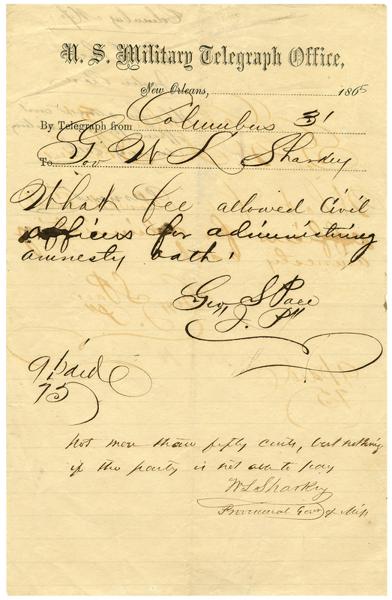 U. S. Military Telegraph Office,
New Orleans, 1865
By Telegraph from Columbus 31
To Gov W L Sharkey
What fee allowed Civil
officers for administring
amnesty oath?
Geo S Pace
J. P.
9 paid
75
not more than fifty cents, but nothing
if the party is not able to pay
W L Sharkey
Provisional Govr of Miss